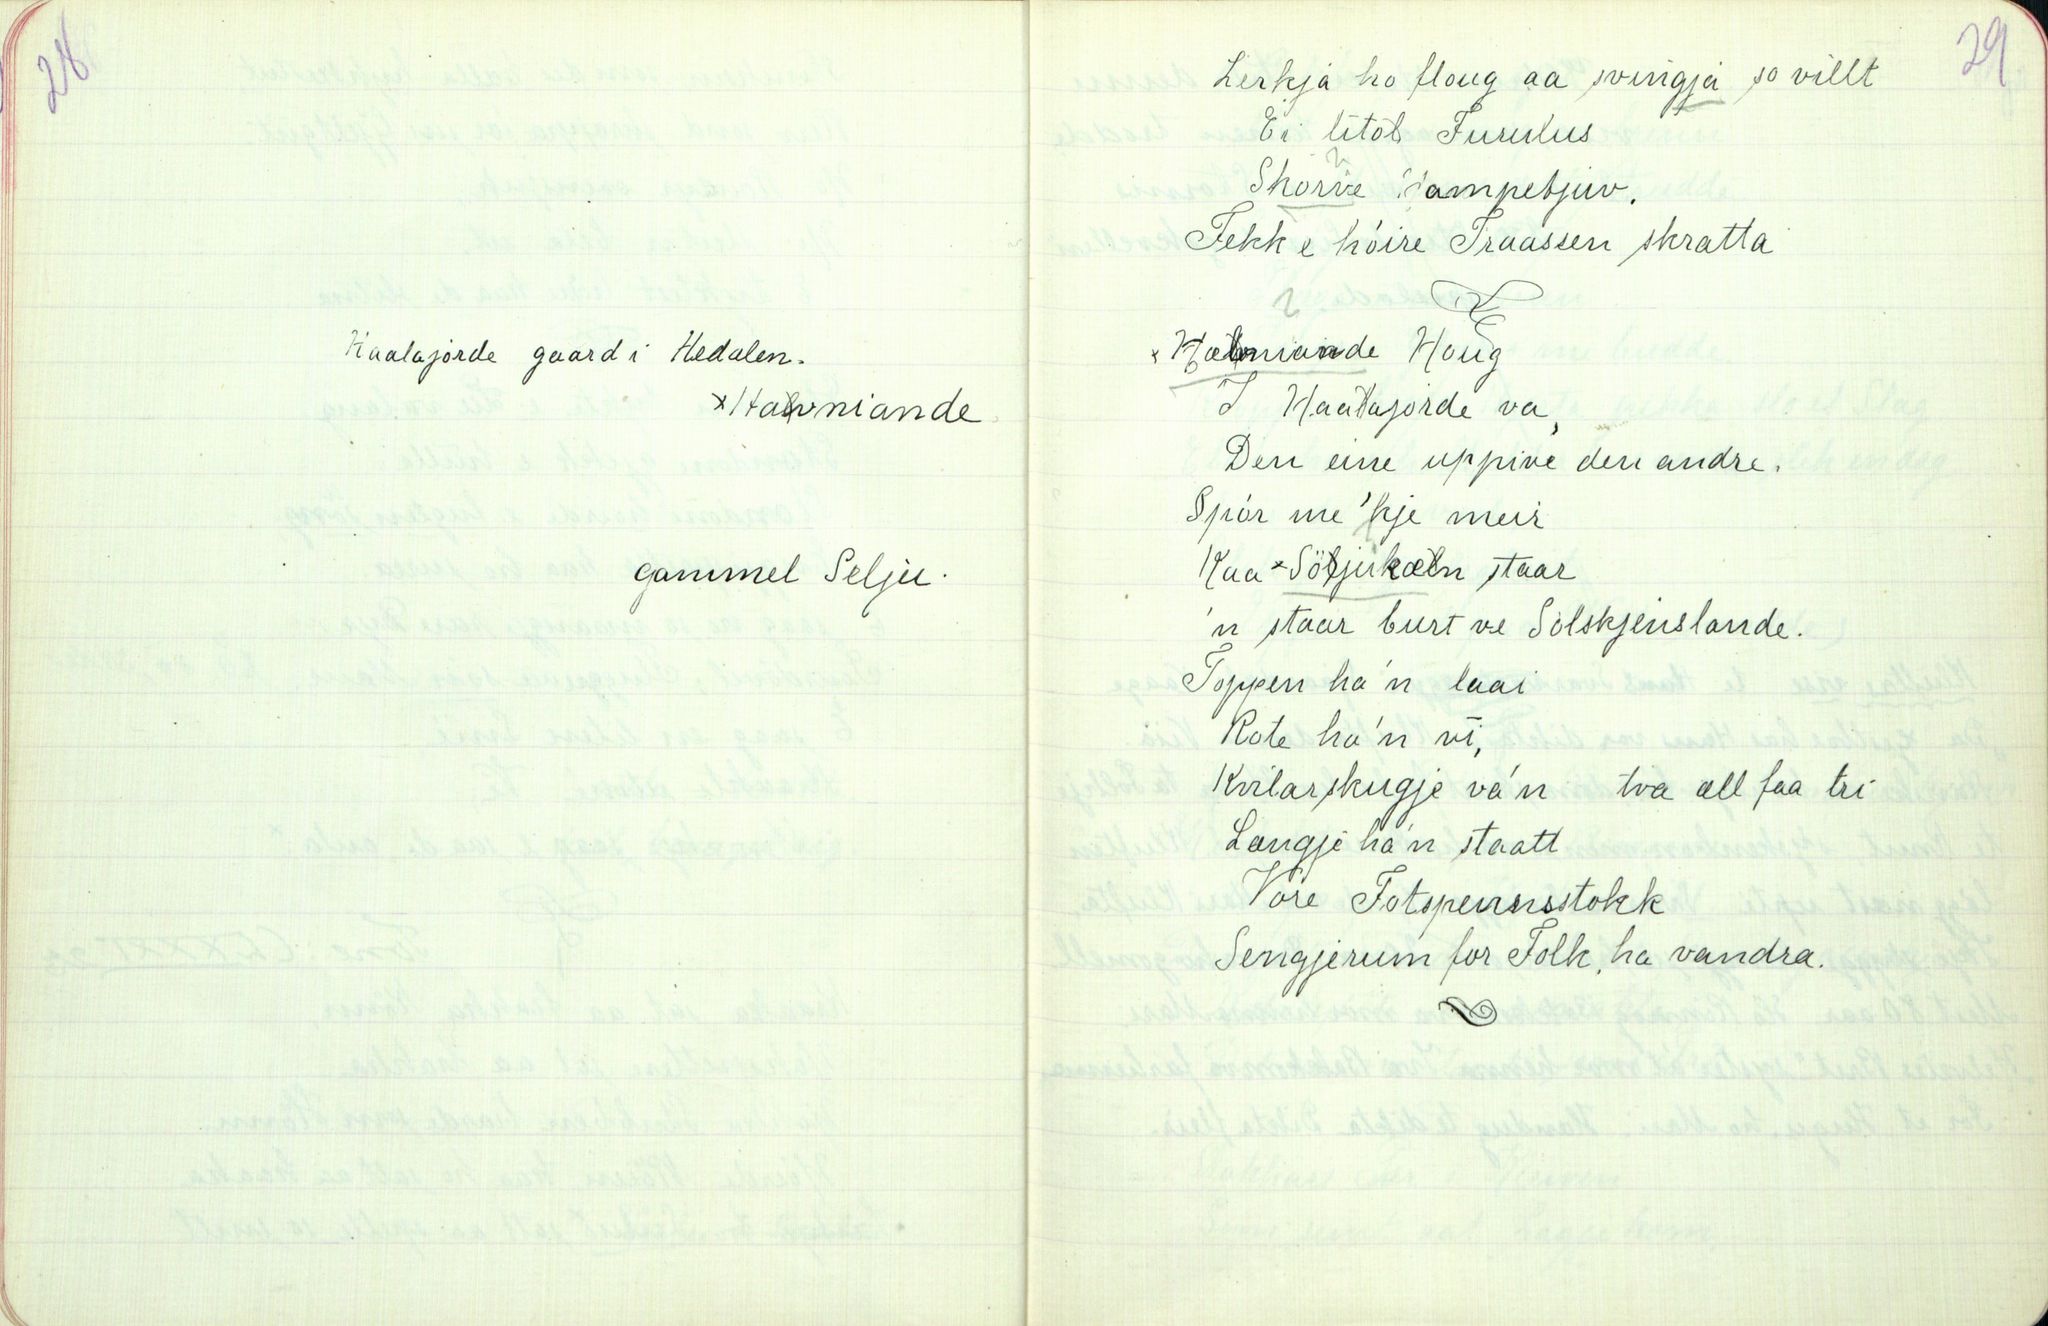 28
Haalajorde gaard i Hedalen.
× Halvniande
gammel Selju.
29
Lerkja ho floug aa svingja so villt
Ei litol Furulus
Skorve
Fekk e hòire Traassen skratta
× Halvniande Houg
I Haalajorde va,
Den eine uppivé den andre.
Spòr me 'kje meir
Kaa × Söljukaln staar
'n staar burt ve Solskjenslande.
Toppen ha'n laai
Rote ha'n vi,
Kvilarskugje va'n tva all faa tri
Langje ha'n staatt
Vore Fotspennsstokk
Sengjerum for Folk, ha vandra.